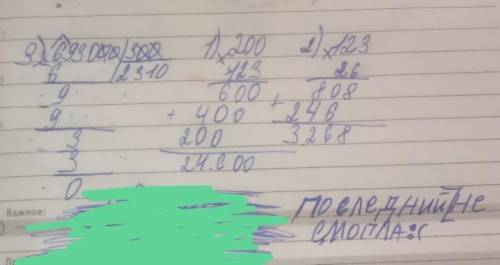 3) 693000 | 300
6 2310
9
9
3
3
0
1) 200
× 123
600
+ 400
200
24.600
2) 123
× 26
808
+ 246
3268
Важное:
ПОСЛЕДНИЙ НЕ
СМОГЛА:(